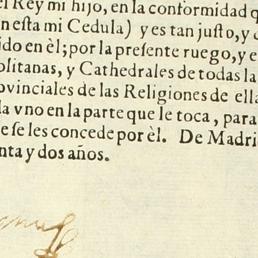 el Rey mi hijo, en la conformidad q
n esta mi Cedula) y es tan justo, y c
ido en èl; por la presente ruego, y e
olitanas, y Cathedrales de todas la
ovinciales de las Religiones de ella
da vno en la parte que le toca, para
e se les concede por èl. De Madri
nta y dos años.